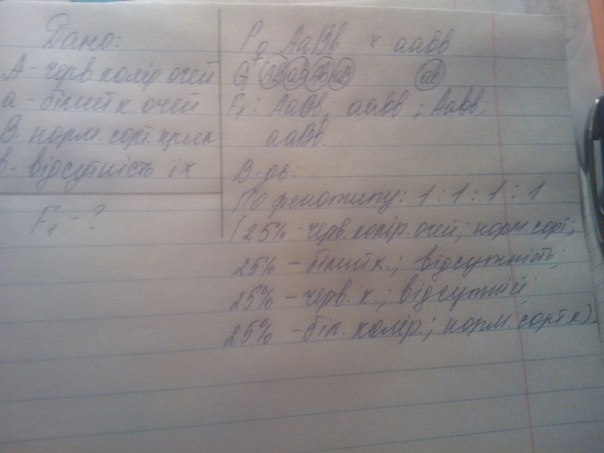 Дано:
А - черв. колір очей
а - білий к очей
В. норм. сорт. крил
в - відсутність їх
F₁ - ?
Р. АаВв × аавв
G ав
F₁: АаВв, аавв; Аавв,
ааВв.
В-дь:
По фенотипу: 1:1:1:1
(25% - черв. колір. очей; норм. сорт;
25% - білий к.; відсутність;
25% - черв. к.; відсутній
25% - біл. колір.; норм. сорт к).